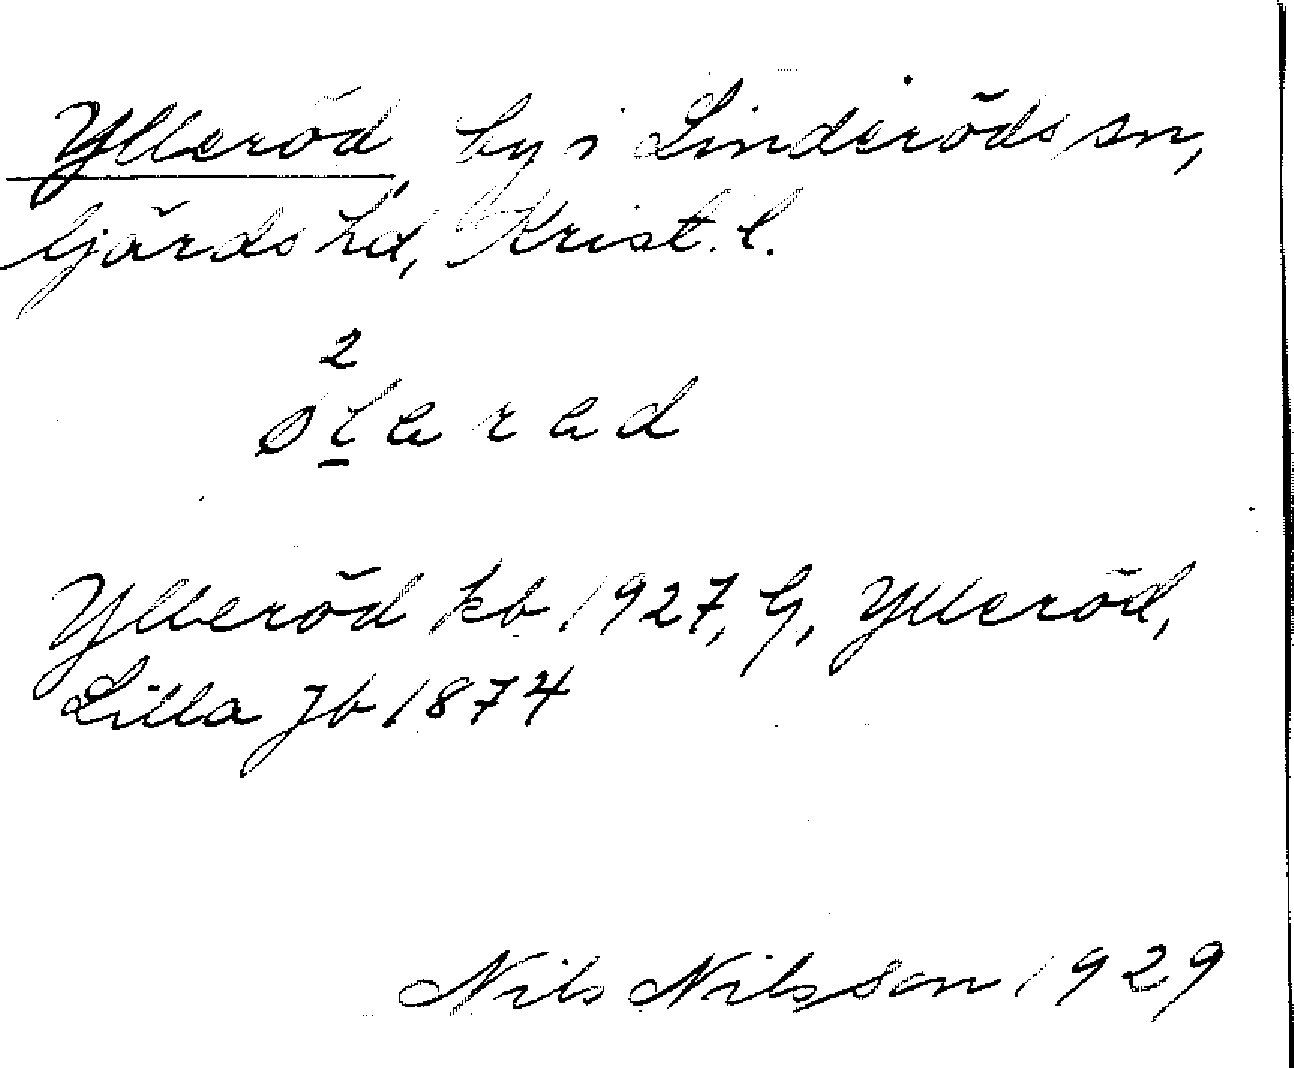 Ylleröd, by i Linderöds sn,
Gärds hd, Krist. l.
2
øl̲erad
Ylleröd kb 1927, G, Ylleröd,
Lilla Jb 1874
Nils Nilsson 1929